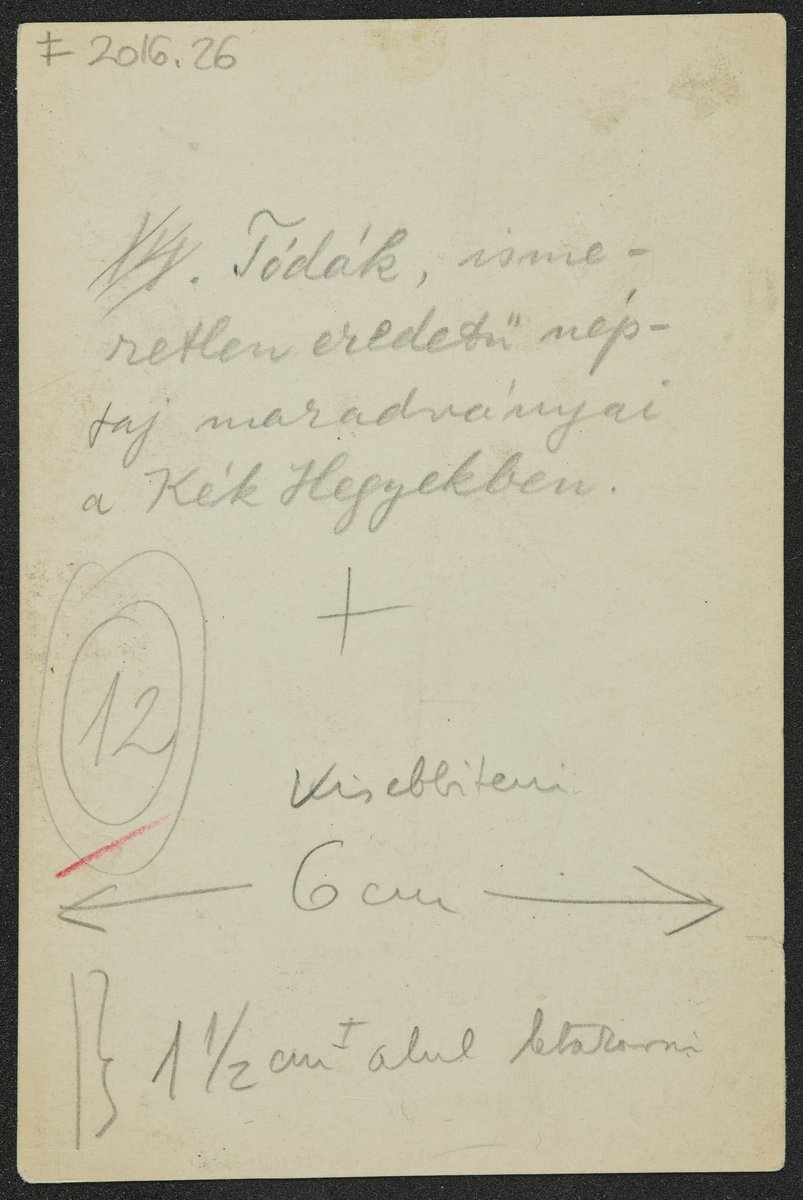 F 2016.26
14. Tódák, isme-
retlen eredetű nép-
faj maradványai
a Kék Hegyekben.
+
12
Kisebbiteni
6 cm
1 1/2 cm ± alul letakarni